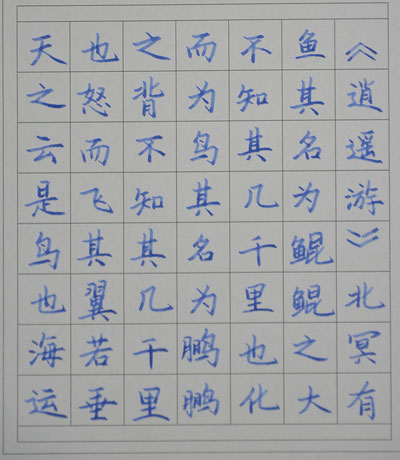 《逍遥游》北冥有
鱼其名为鲲鲲之大
不知其几千里也化
而为鸟其名为鹏鹏
之背不知其几千里
也怒而飞其翼若垂
天之云是鸟也海运